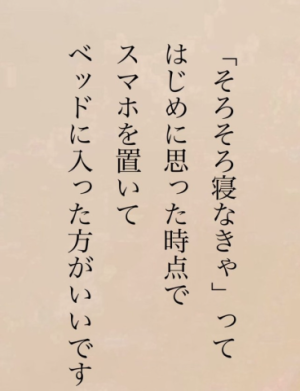 「そろそろ寝なきゃ」って
はじめに思った時点で
スマホを置いて
ベッドに入った方がいいです